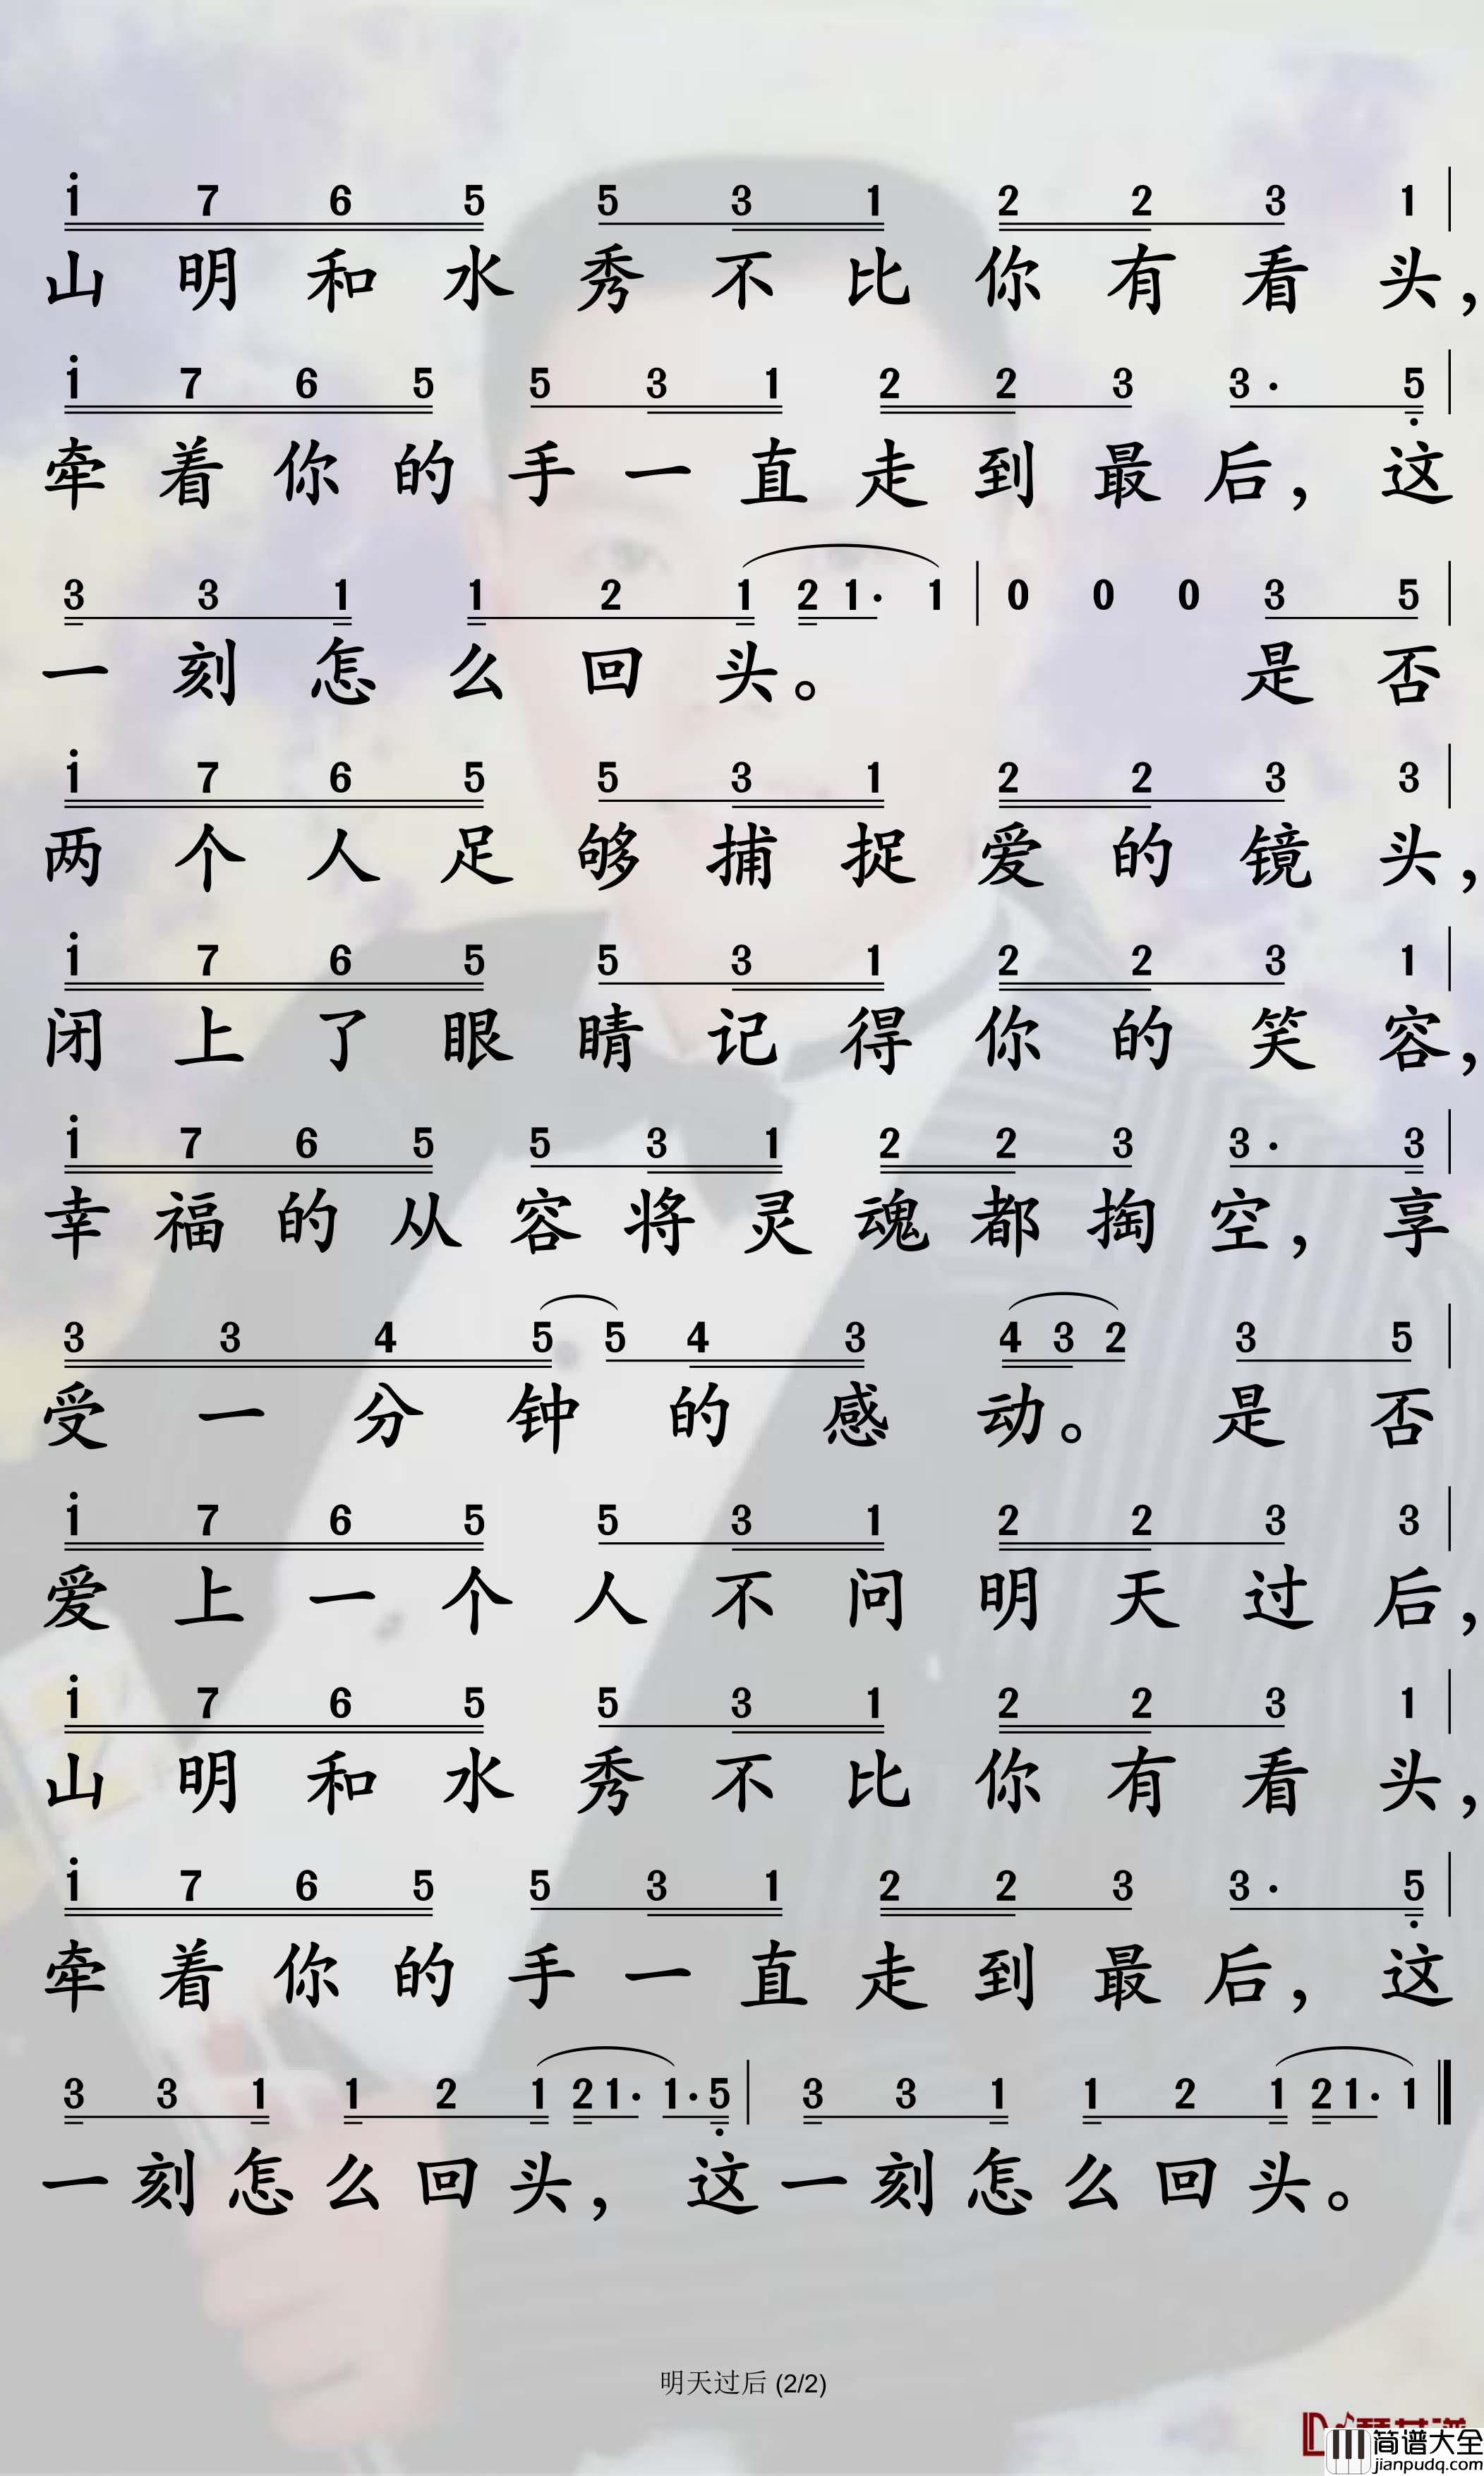 i 7 6 5 5 3 1 2 2 3 1 |
山明和水秀不比你有看头，
i 7 6 5 5 3 1 2 2 3 3· 5 |
牵着你的手一直走到最后，这
3 3 1 1 2 1 2 1· 1 | 0 0 0 3 5 |
一刻怎么回头。 是否
i 7 6 5 5 3 1 2 2 3 3 |
两个人足够捕捉爱的镜头，
i 7 6 5 5 3 1 2 2 3 1 |
闭上了眼睛记得你的笑容，
i 7 6 5 5 3 1 2 2 3 3· 3 |
幸福的从容将灵魂都掏空，享
3 3 4 5 5 4 3 4 3 2 3 5 |
受一分钟的感动。是否
i 7 6 5 5 3 1 2 2 3 3 |
爱上一个人不问明天过后，
i 7 6 5 5 3 1 2 2 3 1 |
山明和水秀不比你有看头，
i 7 6 5 5 3 1 2 2 3 3· 5 |
牵着你的手一直走到最后，这
3 3 1 1 2 1 2 1· 1· 5 | 3 3 1 1 2 1 2 1· 1 ‖
一刻怎么回头，这一刻怎么回头。
明天过后 (2/2)
简谱大全
jianpudq.com